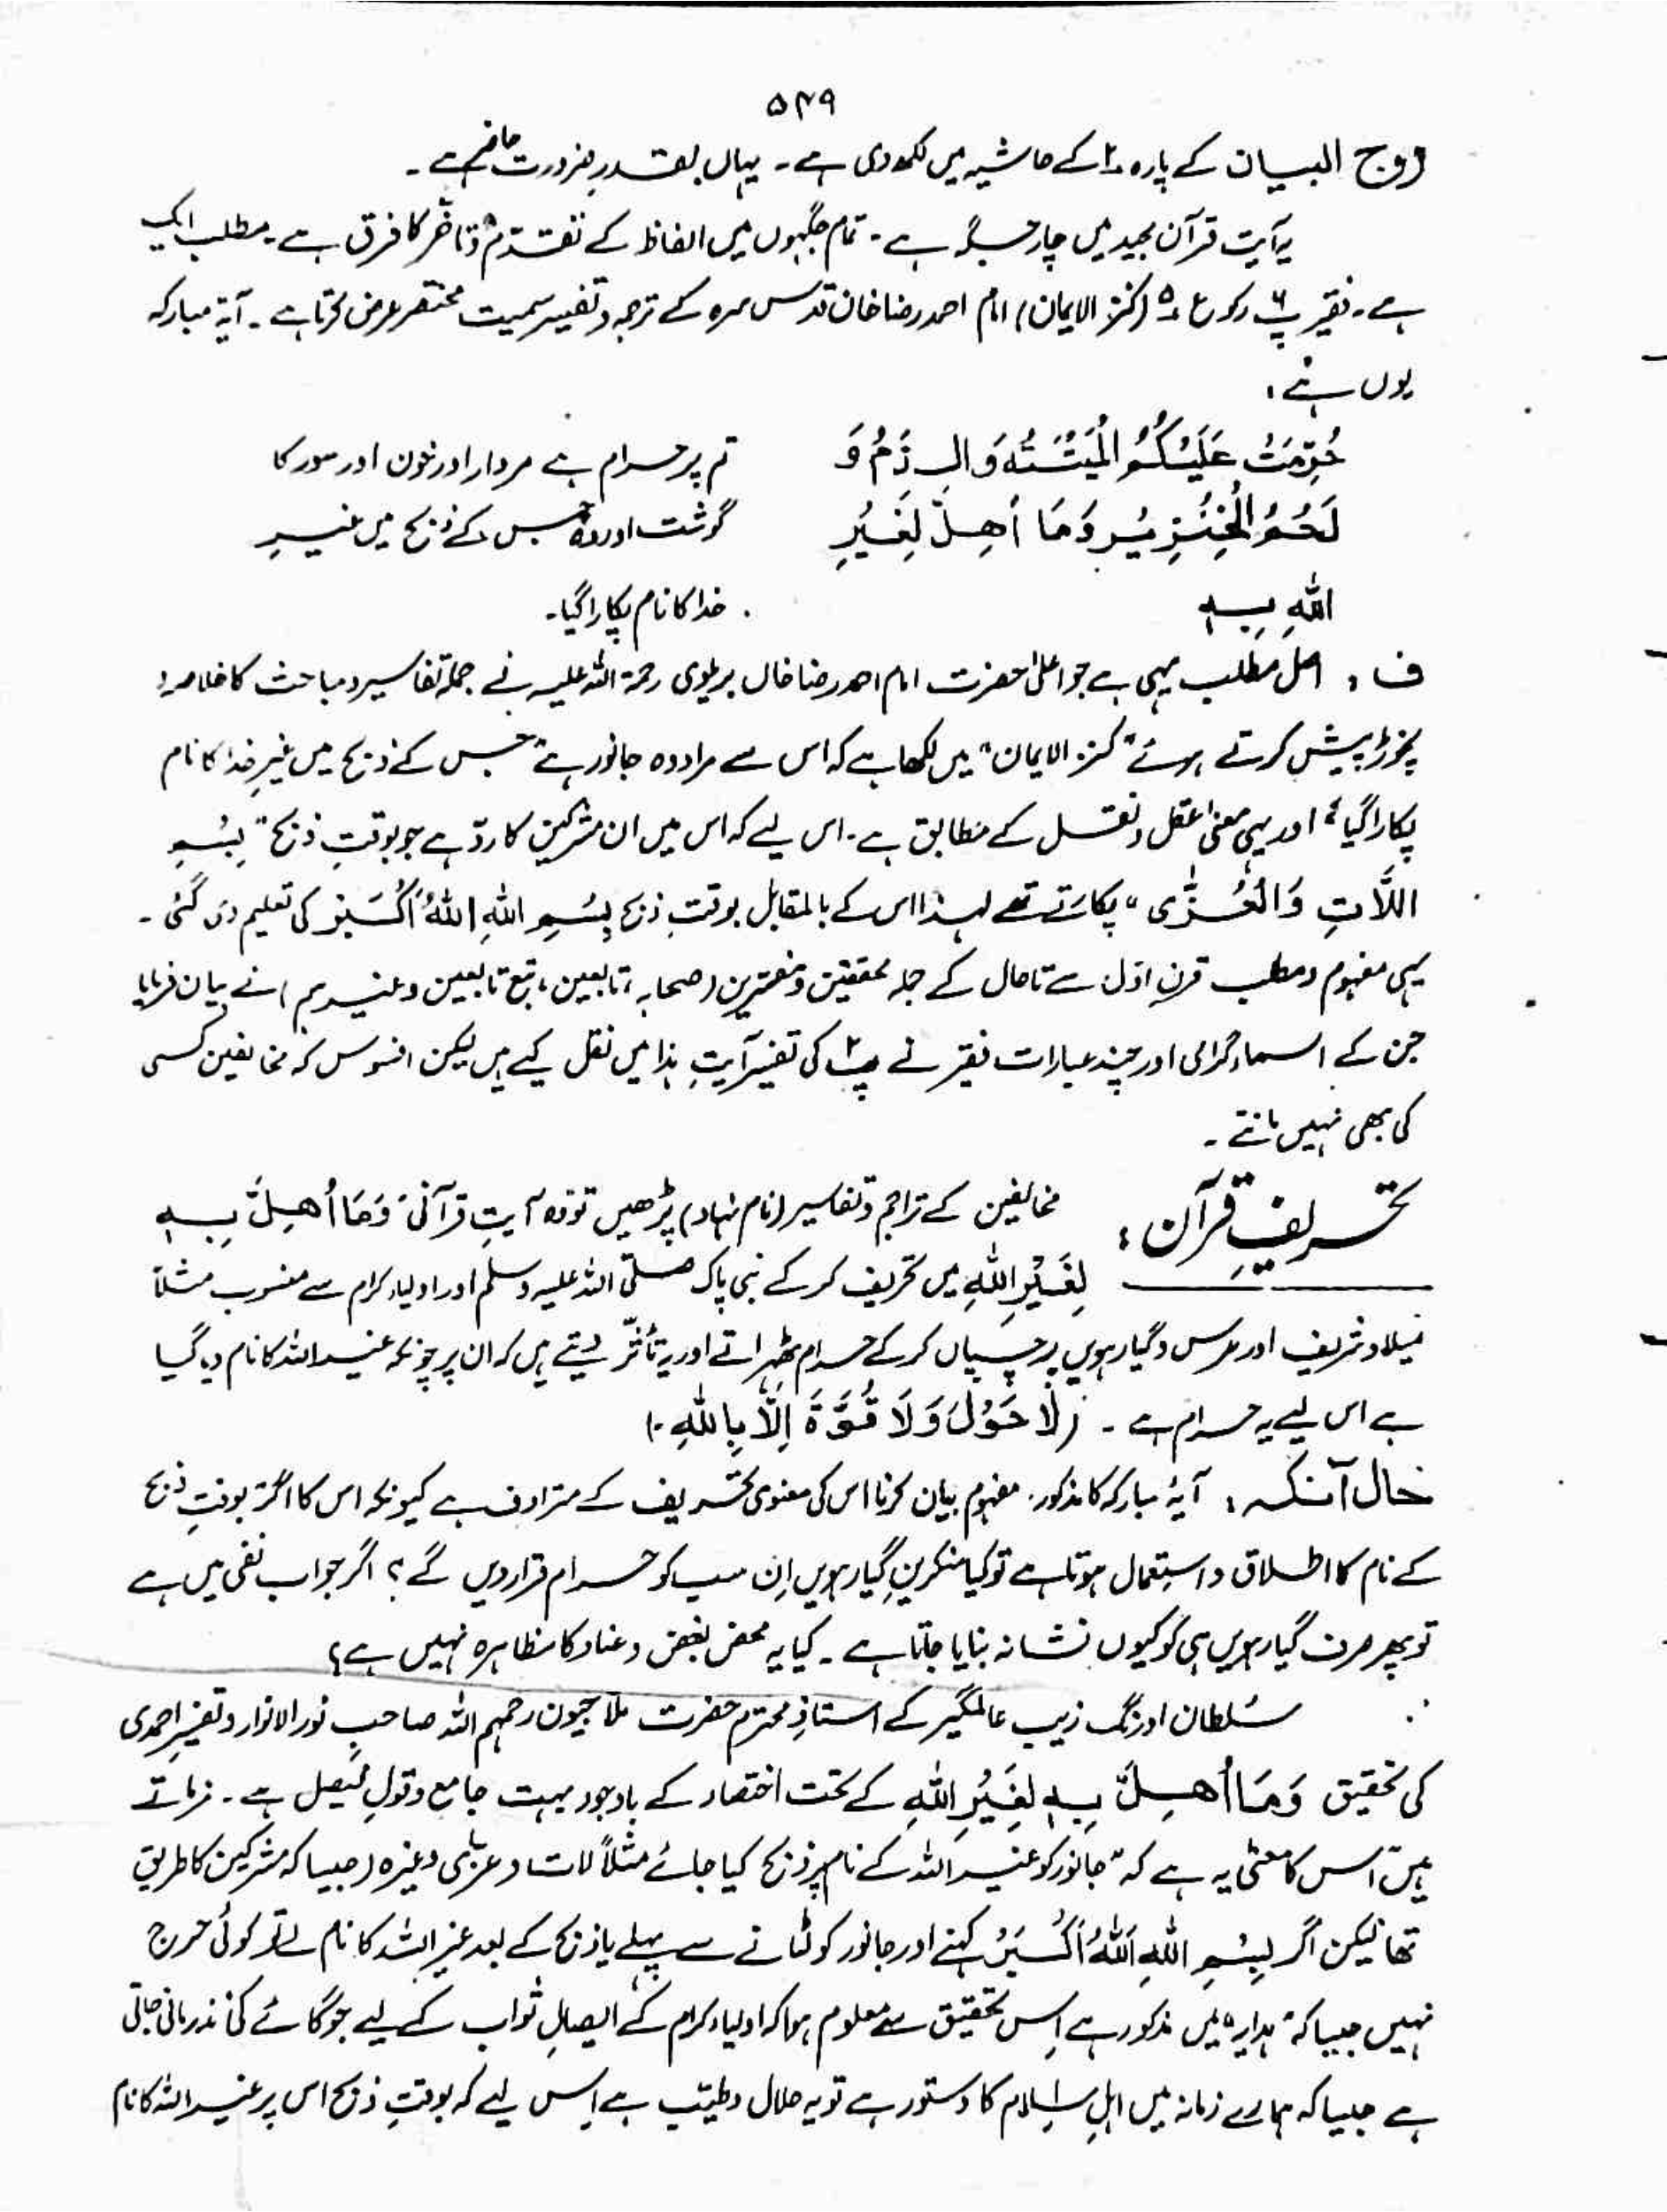 ۵۴۹
روح البیان کے پارہ ۲ کے حاشیہ میں لکھ دی ہے۔ یہاں بقدرِ ضرورت حاضر ہے۔
یہ آیت قرآن مجید میں چار جگہ ہے۔ تمام جگہوں میں الفاظ کے تقدّم و تاخّر کا فرق ہے۔ مطلب ایک
ہے۔ فقیر پ ۶ رکوع ۵ (کنز الایمان) امام احمد رضا خان قدس سرہ کے ترجمہ و تفسیر سمیت مختصر عرض کرتا ہے۔ آیۃ مبارکہ
یوں ہے:
حُرِّمَتْ عَلَيْكُمُ الْمَيْتَتُهَ وَالدَّمُ وَ
تم پر حرام ہے مردار اور خون اور سور کا
لَحْمُ الْخِنْزِيْرِ وَمَا اُهِلَّ لِغَيْرِ
گوشت اور وہ جس کے ذبح میں غیرِ
اللهِ بِهٖ
خدا کا نام پکارا گیا۔
ف: اصل مطلب یہی ہے جو اعلیٰ حضرت امام احمد رضا خاں بریلوی رحمۃ اللہ علیہ نے جملہ تفاسیر و مباحث کا خلاصہ و
نچوڑ پیش کرتے ہوئے "کنز الایمان" میں لکھا ہے کہ اس سے مراد وہ جانور ہے "جس کے ذبح میں غیرِ خدا کا نام
پکارا گیا" اور یہی معنیٰ عقل و نقل کے مطابق ہے۔ اس لیے کہ اس میں ان مشرکین کا ردّ ہے جو بوقتِ ذبح "بِسْمِ
اللَّاتِ وَالْعُزّٰی" پکارتے تھے لہذا اس کے بالمقابل بوقتِ ذبح بِسْمِ اللهِ اللهُ اَكْبَرُ کی تعلیم دی گئی۔
یہی مفہوم و مطلب قرنِ اوّل سے تاحال کے جملہ محققین و مفسّرین (صحابہ، تابعین، تبع تابعین وغیرہم) نے بیان فرمایا
جن کے اسماء گرامی اور چند عبارات فقیر نے پ ۲ کی تفسیر آیتِ ہذا میں نقل کیے ہیں لیکن افسوس کہ مخالفین کسی
کی بھی نہیں مانتے۔
تحریفِ قرآن:
مخالفین کے تراجم و تفاسیر (نام نہاد) پڑھیں تو وہ آیتِ قرآنی "وَمَا اُهِلَّ بِهٖ
لِغَيْرِ اللهِ میں تحریف کر کے نبی پاک صلّی اللہ علیہ وسلم اور اولیاء کرام سے منسوب مثلاً
میلاد شریف اور عرس و گیارہویں پر چسپاں کر کے حرام ٹھہراتے اور یہ تأثّر دیتے ہیں کہ ان پر چونکہ غیر اللہ کا نام دیا گیا
ہے اس لیے یہ حرام ہے۔ (لَا حَوْلَ وَلَا قُوَّةَ اِلَّا بِاللهِ۔)
حال آنکہ: آیۂ مبارکہ کا مذکور مفہوم بیان کرنا اس کی معنوی تحریف کے مترادف ہے کیونکہ اس کا اگر بوقتِ ذبح
کے نام کا اطلاق و استعمال ہوتا ہے تو کیا منکرینِ گیارہویں اِن سب کو حرام قرار دیں گے؟ اگر جواب نفی میں ہے
تو پھر صرف گیارہویں ہی کو کیوں نشانہ بنایا جاتا ہے۔ کیا یہ محض بغض و عناد کا مظاہرہ نہیں ہے؟
سُلطان اورنگ زیب عالمگیر کے استاذِ محترم حضرت ملّا جیون رحمہم اللہ صاحبِ نور الانوار و تفسیرِ احمدی
کی تحقیق وَمَا اُهِلَّ بِهٖ لِغَيْرِ اللهِ کے تحت اختصار کے باوجود بہت جامع و قولِ فیصل ہے۔ فرماتے
ہیں "اس کا معنٰی یہ ہے کہ "جانور کو غیر اللہ کے نام پر ذبح کیا جائے مثلاً لات و عزّٰی وغیرہ (جیسا کہ مشرکین کا طریق
تھا لیکن اگر بِسْمِ اللهِ اَللهُ اَكْبَرُ کہنے اور جانور کو لٹانے سے پہلے یا ذبح کے بعد غیر اللہ کا نام لے تو کوئی حرج
نہیں جیسا کہ "ہدایہ" میں مذکور ہے اِس تحقیق سے معلوم ہوا کہ اولیاء کرام کے ایصالِ ثواب کے لیے جو گائے کی نذر مانی جاتی
ہے جیسا کہ ہمارے زمانہ میں اہلِ اسلام کا دستور ہے تو یہ حلال و طیّب ہے اِس لیے کہ بوقتِ ذبح اس پر غیر اللہ کا نام